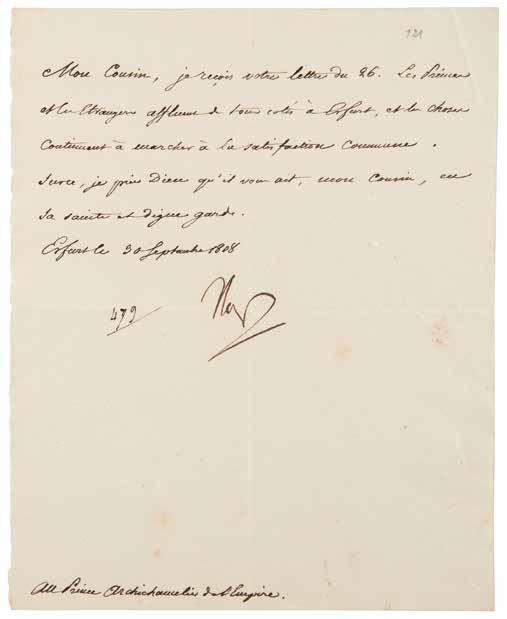 121
Mon Cousin, je reçois votre lettre du 26. Les Princes
et les Etrangers affluent de tous cotés à Erfurt, et les choses
Continuent à marcher à la satisfaction Commune.
Surce, je prie Dieu qu'il vous ait, mon Cousin, en
Sa sainte et digne garde.
Erfurt le 30 Septembre 1808
479
Nap
Au Prince Archichancelier de l'Empire.